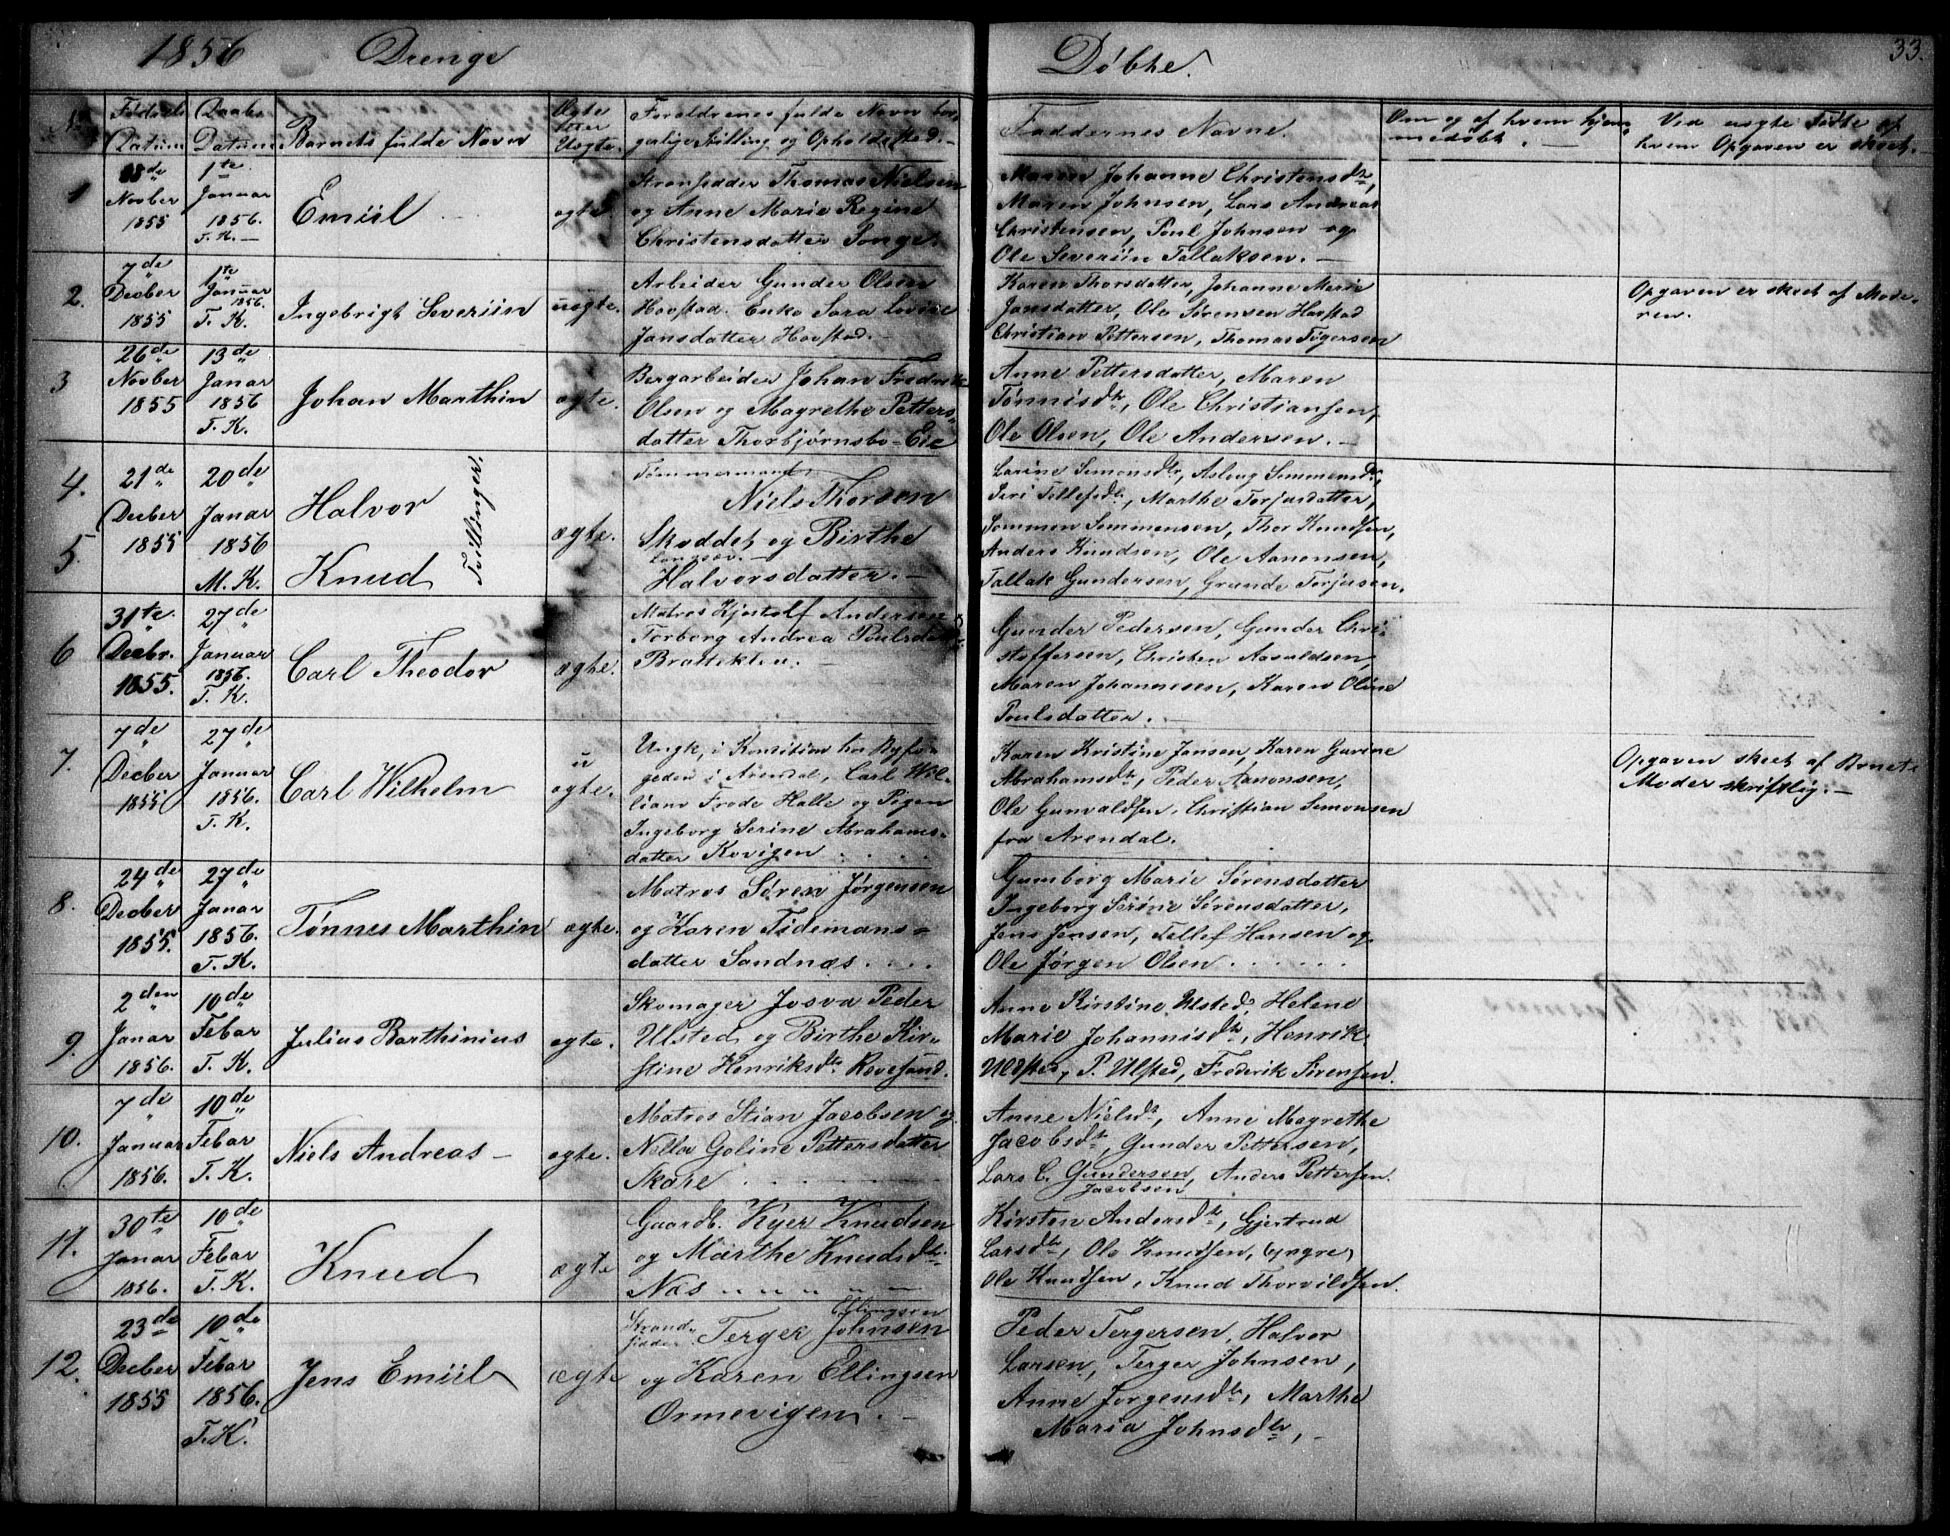 1856 Drenge Døbte. 33.
No Fødsels Datum
Daabs Datum
Barnets fulde Navn
Ægte eller Uægte.
Forældrenes fulde Navn bor-
gerlige Stilling og Opholdssted.
Faddernes Navne.
Om og af hvem hjem-
medøbt.
Ved uægte Fødte af
hvem Opgaven er skeet.
1
18de Novber 1855
1te Januar 1856. T. K.
Emiil
ægte
Strandsidder Thomas Nielsen
og Anne Marie Regine
Christensdatter Songe.
Maren Johanne Christensdtr,
Maren Johnsen, Lars Andreas
Christensen, Poul Johnsen og
Ole Severiin Tallaksen.
2.
7de Decber 1855
1te Januar 1856. T. K.
Ingebrigt Severiin
uægte.
Arbeider Gunder Olsen
Hovstad. Enke Sara Lovise
Jansdatter Hovstad.
Karen Thorsdatter, Johanne Marie
Jansdatter, Ole Sørensen Hovstad
Christian Pettersen, Thomas Tøgersen
Opgaven er skeet af Mode-
ren.
3
26de Novber 1855
13de Janar 1856 T. K.
Johan Marthin
ægte.
Bergarbeider Johan Fredrik
Olsen og Magrethe Petters-
datter Thorbjørnsbo-Eie
Anne Pettersdatter, Maren
Tønnisdtr, Ole Christiansen,
Ole Olsen, Ole Andersen.
4.
5.
21de Decber 1855
20de Janar 1856 M. K.
Halvor
Knud
Tvillinger.
ægte.
Tømmermand
Niels Thorsen
Skoddet og Birthe
Langsæv.
Halvorsdatter.
Larine Simonsdtr, Asloug Simmensdtr,
Siri Tellefsdtr, Marthe Torjusdatter,
Sommen Simmensen, Thor Knudsen,
Anders Knudsen, Ole Aanonsen,
Tallak Gundersen, Grunde Torjusen.
6
31te Decbr. 1855.
27de Januar 1856. T. K.
Carl Theodor
ægte.
Matros Kjøstolf Andersen &
Torborg Andrea Poulsdatter
Brattekleiv.
Gunder Pedersen, Gunder Chri-
stoffersen, Christen Aasuldsen,
Maren Johannesen, Karen Oline
Poulsdatter.
7.
7de Decber 1855
27de Januar 1856. T. K.
Carl Wilhelm
u
ægte.
Ungk, i Kondition hos Byfo-
geden i Arendal, Carl Wil-
liam Frode Halle og Pigen
Ingeborg Serine Abrahams-
datter Kovigen
Karen Kristine Jansen, Karen Gurine
Abrahamsdtr, Peder Aanonsen,
Ole Gunvaldsen, Christian Simonsen
fra Arendal.
Opgaven skeet af Barnets
Moder skriftlig.
8.
24de Decber 1855.
27de Janar 1856. T. K.
Tønnes Marthin
ægte.
Matros Søren Jørgensen
og Karen Tidemans-
datter Sandnæs.
Gumborg Marie Sørensdatter
Ingeborg Serine Sørensdatter,
Jens Jensen, Tellef Hansen og
Ole Jørgen Olsen
9.
2den Janar 1856.
10de Febar T. K.
Julius Barthinius
ægte.
Skomager Josva Peder
Ulsted og Birthe Kir-
stine Henriksdtr Revesand.
Anne Kirstine Ulsted, Helene
Marie Johannisdtr, Henrik
Ulsted, P. Ulsted, Frederik Sørensen.
10.
7de Januar 1856.
10de Febar T. K.
Niels Andreas
ægte.
Matros Stian Jacobsen og
Nella Goline Pettersdatter
Skare
Anne Nielsdtr, Anne Magrethe
Jacobsdtr, Gunder Pettersen,
Lars C. Gundersen, Anders Pettersen.
Jacobsen
11.
30te Janar 1856.
10de Febar T. K.
Knud
ægte
Gaardb. Kjer Knudsen
og Marthe Knudsdtr
Næs
Kirsten Andersdtr, Gjertrud
Larsdtr, Ole Knudsen, yngre,
Ole Knudsen, Knud Thorvildsen.
12.
23de Decber 1855
10de Febar 1856. T. K.
Jens Emiil
ægte
Ellingsen
Strandsidder Terger Johnsen
og Karen Ellingsen
Ormevigen.
Peder Tergersen, Halvor
Larsen, Terger Johnsen,
Anne Jørgensdtr, Marthe
Maria Johnsdtr,